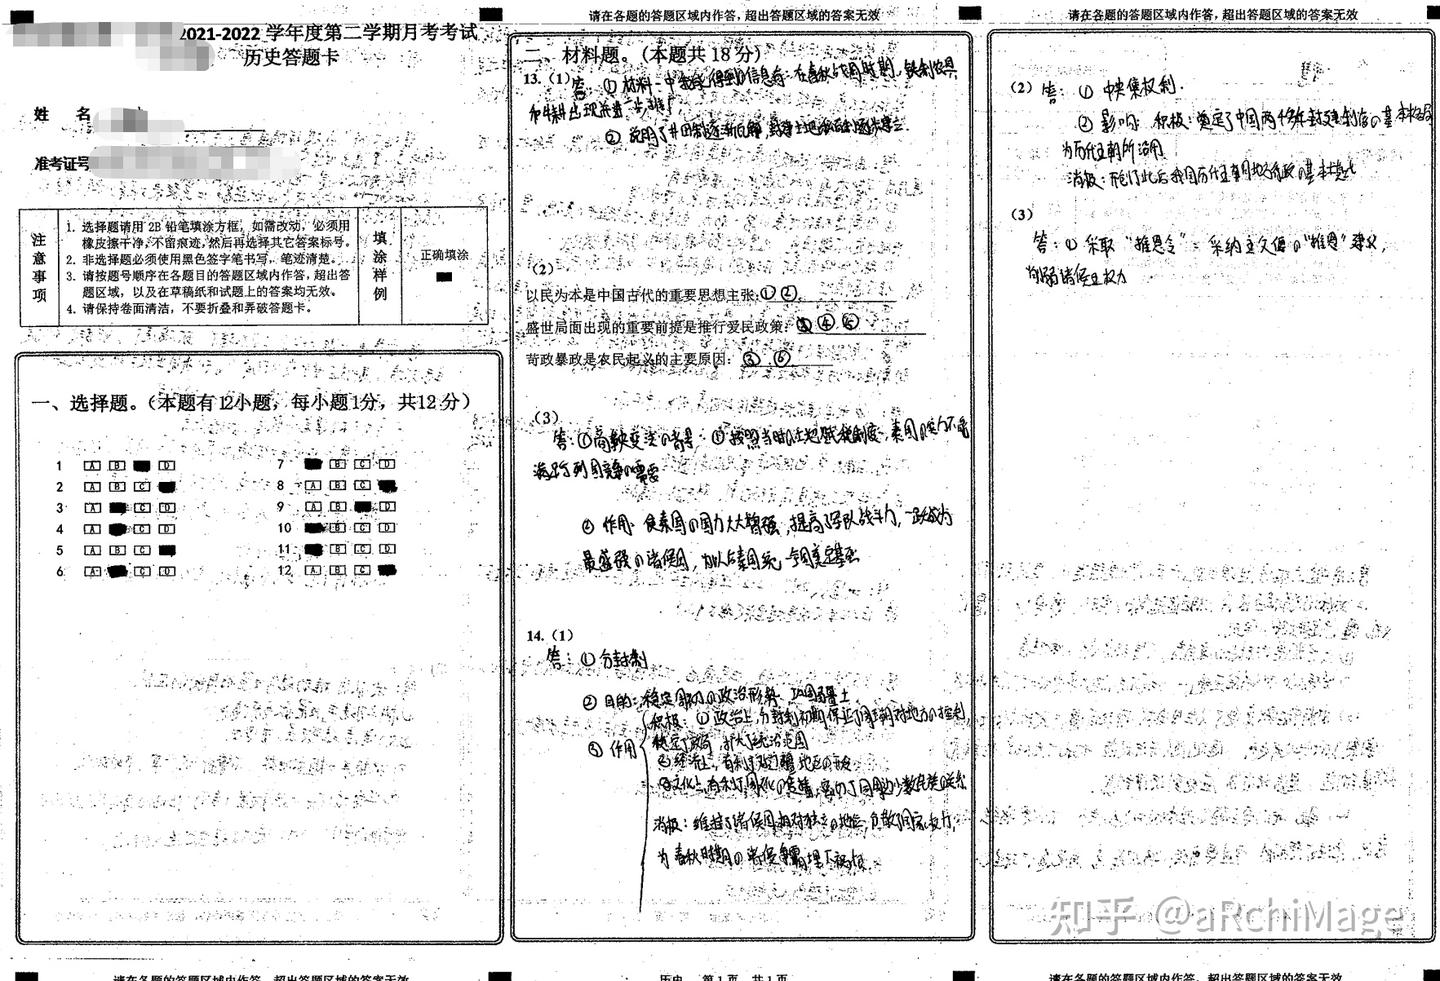 2021-2022 学年度第二学期月考考试
历史答题卡
姓 名
准考证号
注意事项
1. 选择题请用 2B 铅笔填涂方框，如需改动，必须用
橡皮擦干净，不留痕迹，然后再选择其它答案标号。
2. 非选择题必须使用黑色签字笔书写，笔迹清楚。
3. 请按题号顺序在各题目的答题区域内作答，超出答
题区域，以及在草稿纸和试题上的答案均无效。
4. 请保持卷面清洁，不要折叠和弄破答题卡。
填涂样例
正确填涂
一、选择题。（本题有12小题，每小题1分，共12分）
1 A B D
2 A B C
3 A C D
4 A C D
5 A B C
6 A C D
7 B C D
8 A B C
9 A B D
10 B C D
11 B C D
12 A B C
请在各题的答题区域内作答，超出答题区域的答案无效
二、材料题。（本题共 18 分）
13.（1）
答：① 材料一中我们得到的信息有：在春秋战国时期，铁制农具
和牛耕出现并进一步推广
② 说明了井田制逐渐瓦解
（2）
以民为本是中国古代的重要思想主张：① ②
盛世局面出现的重要前提是推行爱民政策：③ ④ ⑤
苛政暴政是农民起义的主要原因：③ ⑥
（3）
答：① 商鞅变法的背景：① 按照当时的土地赋税制度，秦国的实力不能
满足列国竞争的需要
② 作用：使秦国的国力大大增强，提高了军队战斗力，一跃成为
最强盛的诸侯国，为以后秦国统一全国奠定基础
14.（1）
答：① 分封制
② 目的：稳定周初的政治形势，巩固疆土
③ 作用
积极：① 政治上，分封制初期保证了周王朝对地方的控制
稳定了政局，扩大了统治范围
② 经济上，有利于边疆地区的开发
③ 文化上，有利于周文化的传播，密切了同周边少数民族的联系
消极：维护了诸侯国相对独立的地位，分散了国家权力，
为春秋时期的诸侯争霸埋下祸根
请在各题的答题区域内作答，超出答题区域的答案无效
（2）答：① 中央集权制.
② 影响：积极：奠定了中国两千多年封建制度的基本格局
为历代王朝所沿用
消极：
（3）
答：① 采取“推恩令”：采纳主父偃的“推恩”建议，
削弱诸侯王权力
知乎 @aRchiMage
请在各题的答题区域内作答，超出答题区域的答案无效
历史 第 1 页 共 1 页
请在各题的答题区域内作答，超出答题区域的答案无效